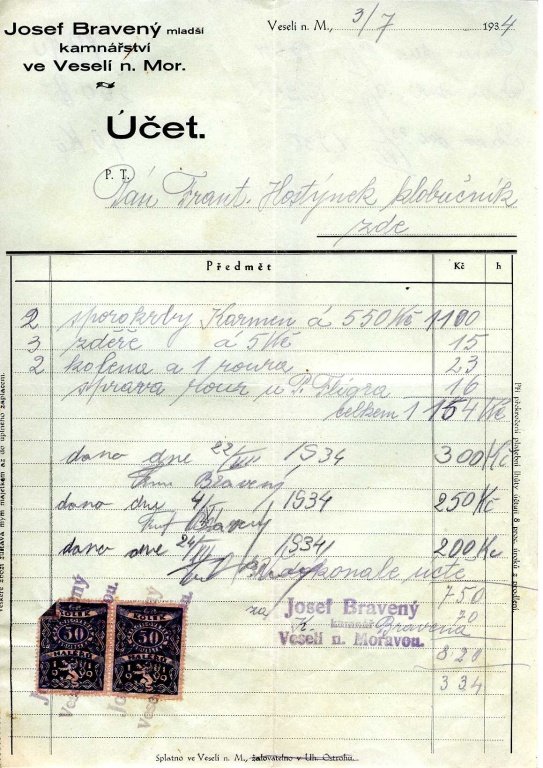 Josef Bravený mladší
kamnářství
ve Veselí n. Mor.
Veselí n. M., 3/7 1934
Účet.
P. T. Pán Frant. Hostýnek klobučník
zde
Předmět Kč h
2 sporokrby Karmen á 550 Kč 1100
3 zděře á 5 Kč 15
2 kolena a 1 roura 23
sprava rour u P. Fligra 16
celkem 1154 Kč
dano dne 22/VIII 1934 300 Kč
Bravený
dano dne 4/ 1934 250 Kč
Bravený
dano dne 24/ 1934 200 Kč
750
na 70
Josef Bravený
K. Bravená
Veselí n. Moravou.
820
334
KOLEK KOLEK
50 50
HALÉŘŮ HALÉŘŮ
Splatno ve Veselí n. M., žalovatelno v Uh. Ostrohu.
Veškeré zboží zůstává mým majetkem až do úplného zaplacení.
Při překročení placení lhůty účtuji 8 proc. úroky z prodlení.